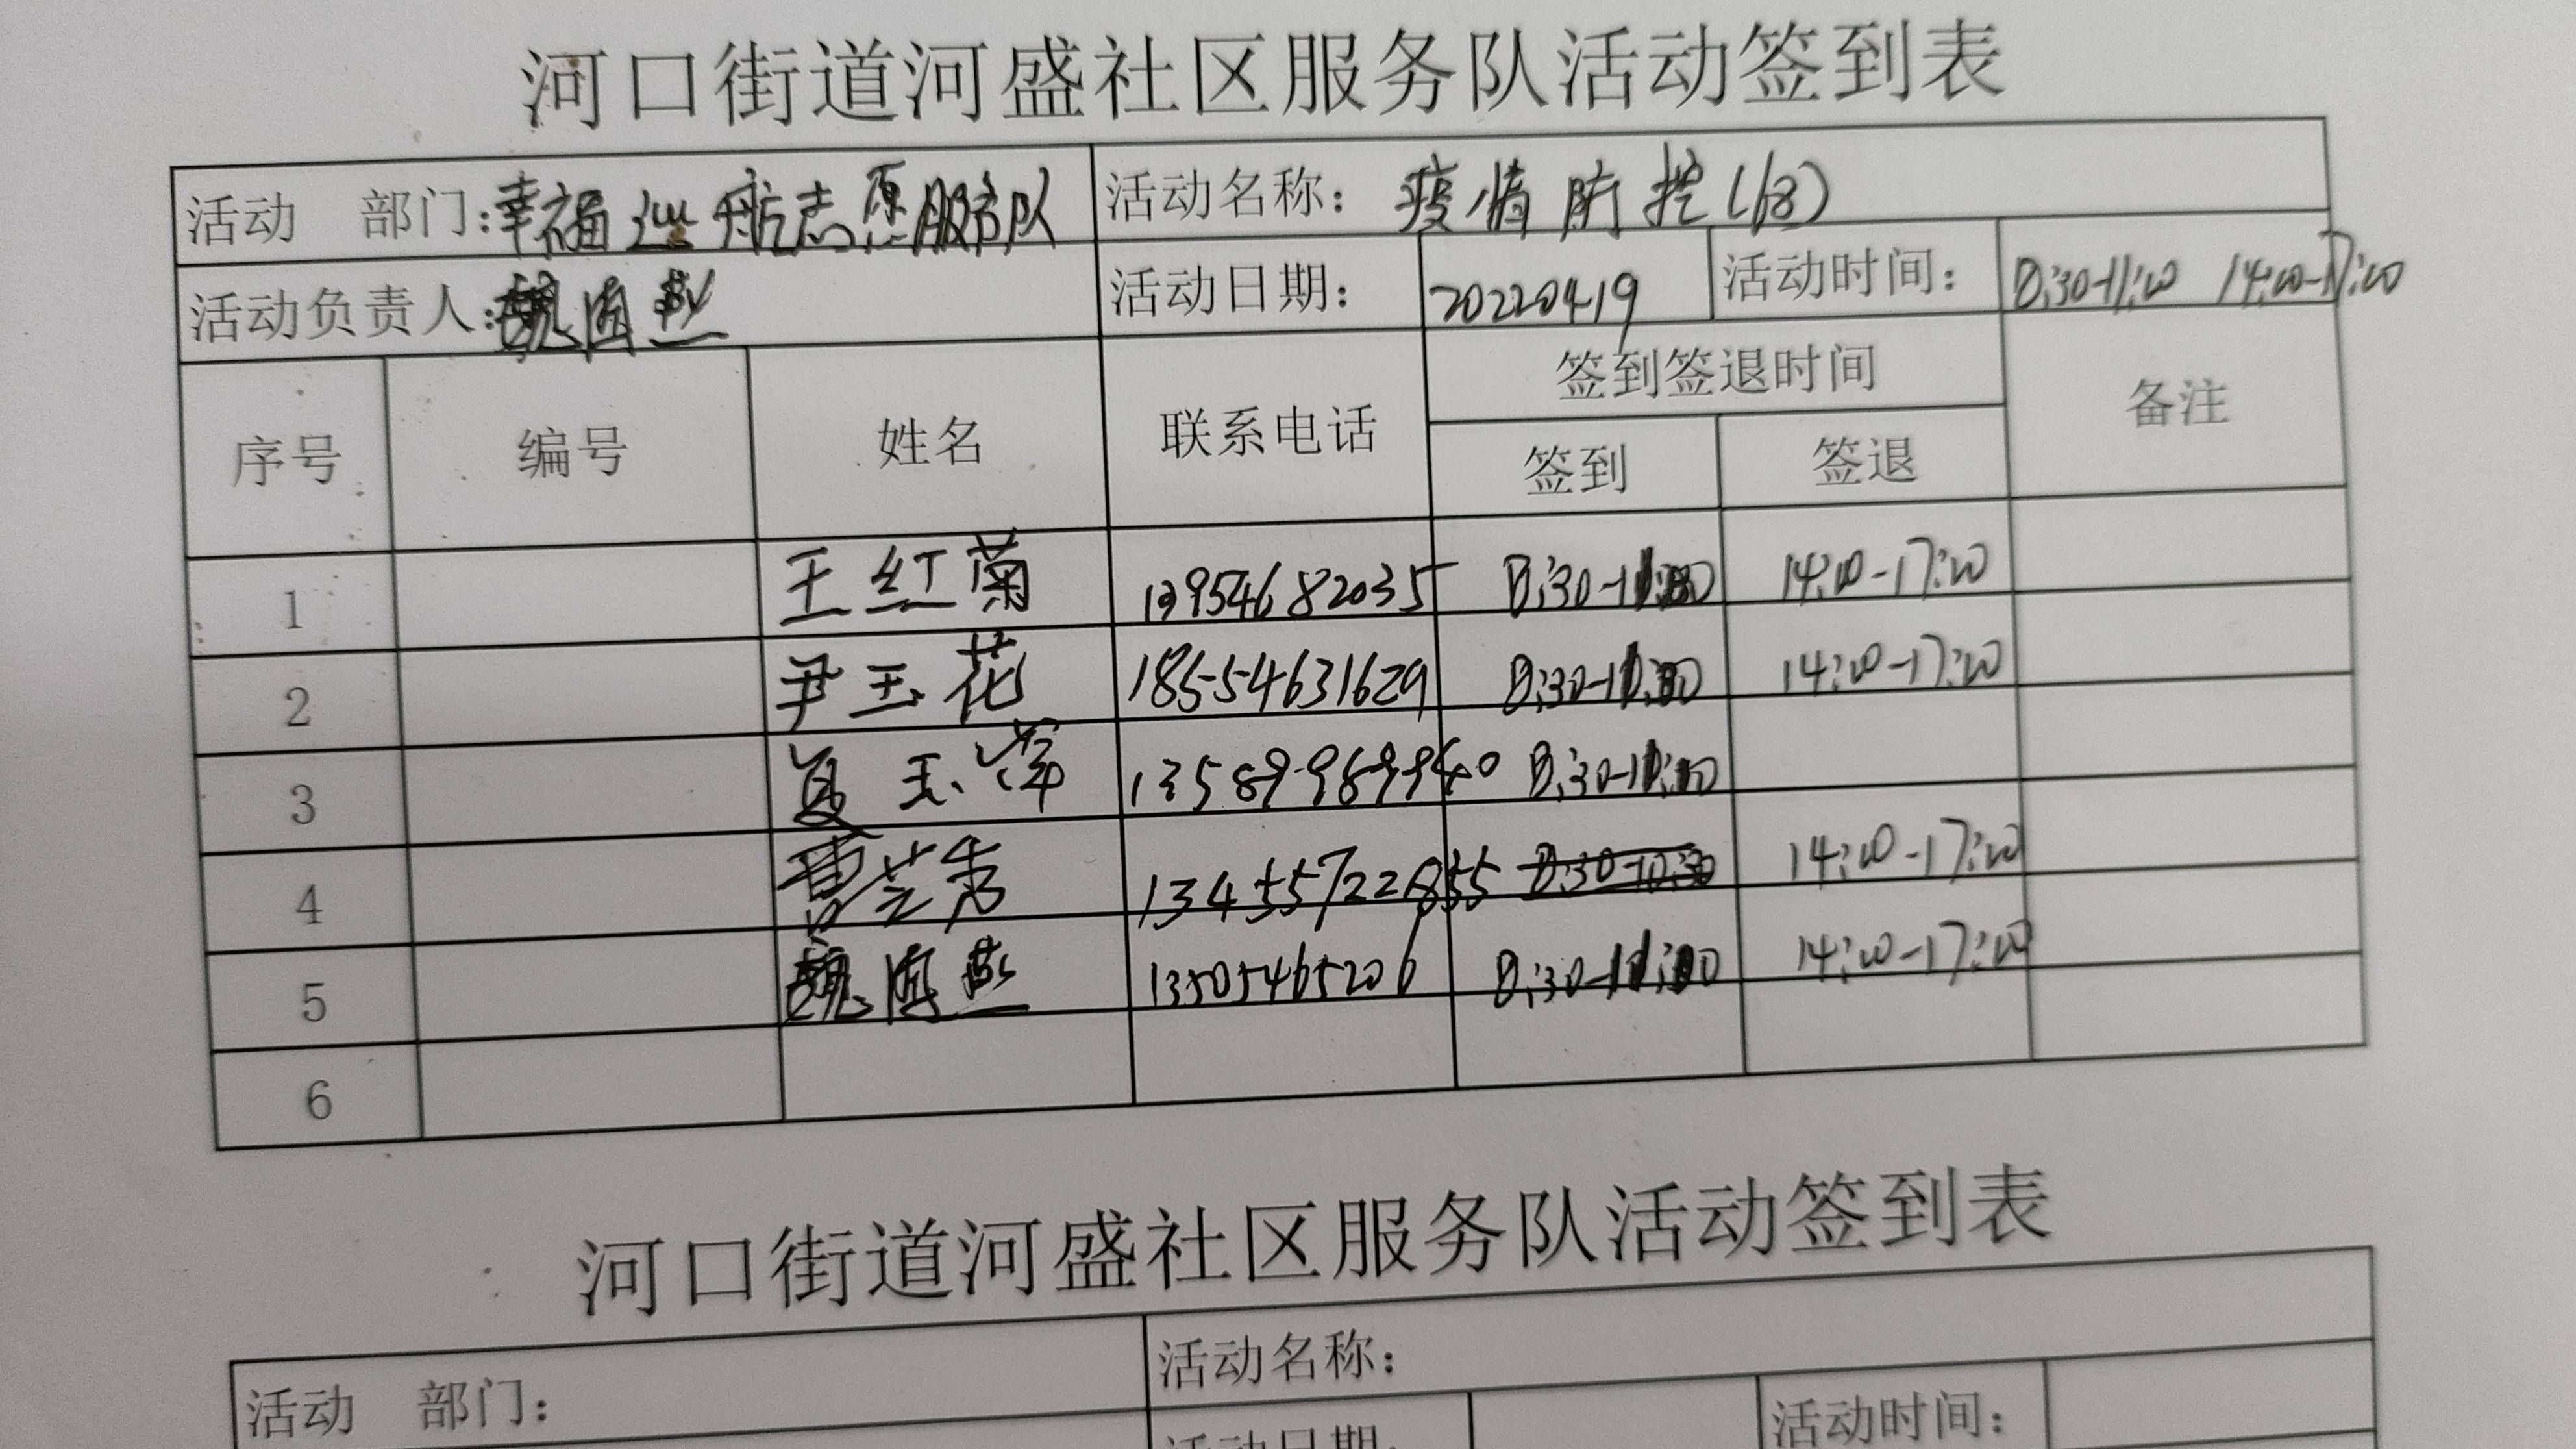 河口街道河盛社区服务队活动签到表
活动 部门:幸福 航志愿服务队 活动名称: 疫情防控(68)
活动负责人:魏 燕 活动日期: 20220419 活动时间: 8:30-11:00 14:00-17:00
序号 编号 姓名 联系电话 签到签退时间 备注
签到 签退
1 王红菊 13954682035 8:30-11:00 14:00-17:00
2 尹玉花 18554631629 8:30-11:00 14:00-17:00
3 玉萍 13589969940 8:30-11:00
4 曹芸秀 13455722855 8:30-10:30 14:00-17:00
5 魏 燕 13505465206 8:30-11:00 14:00-17:00
6
河口街道河盛社区服务队活动签到表
活动 部门: 活动名称:
活动日期: 活动时间: